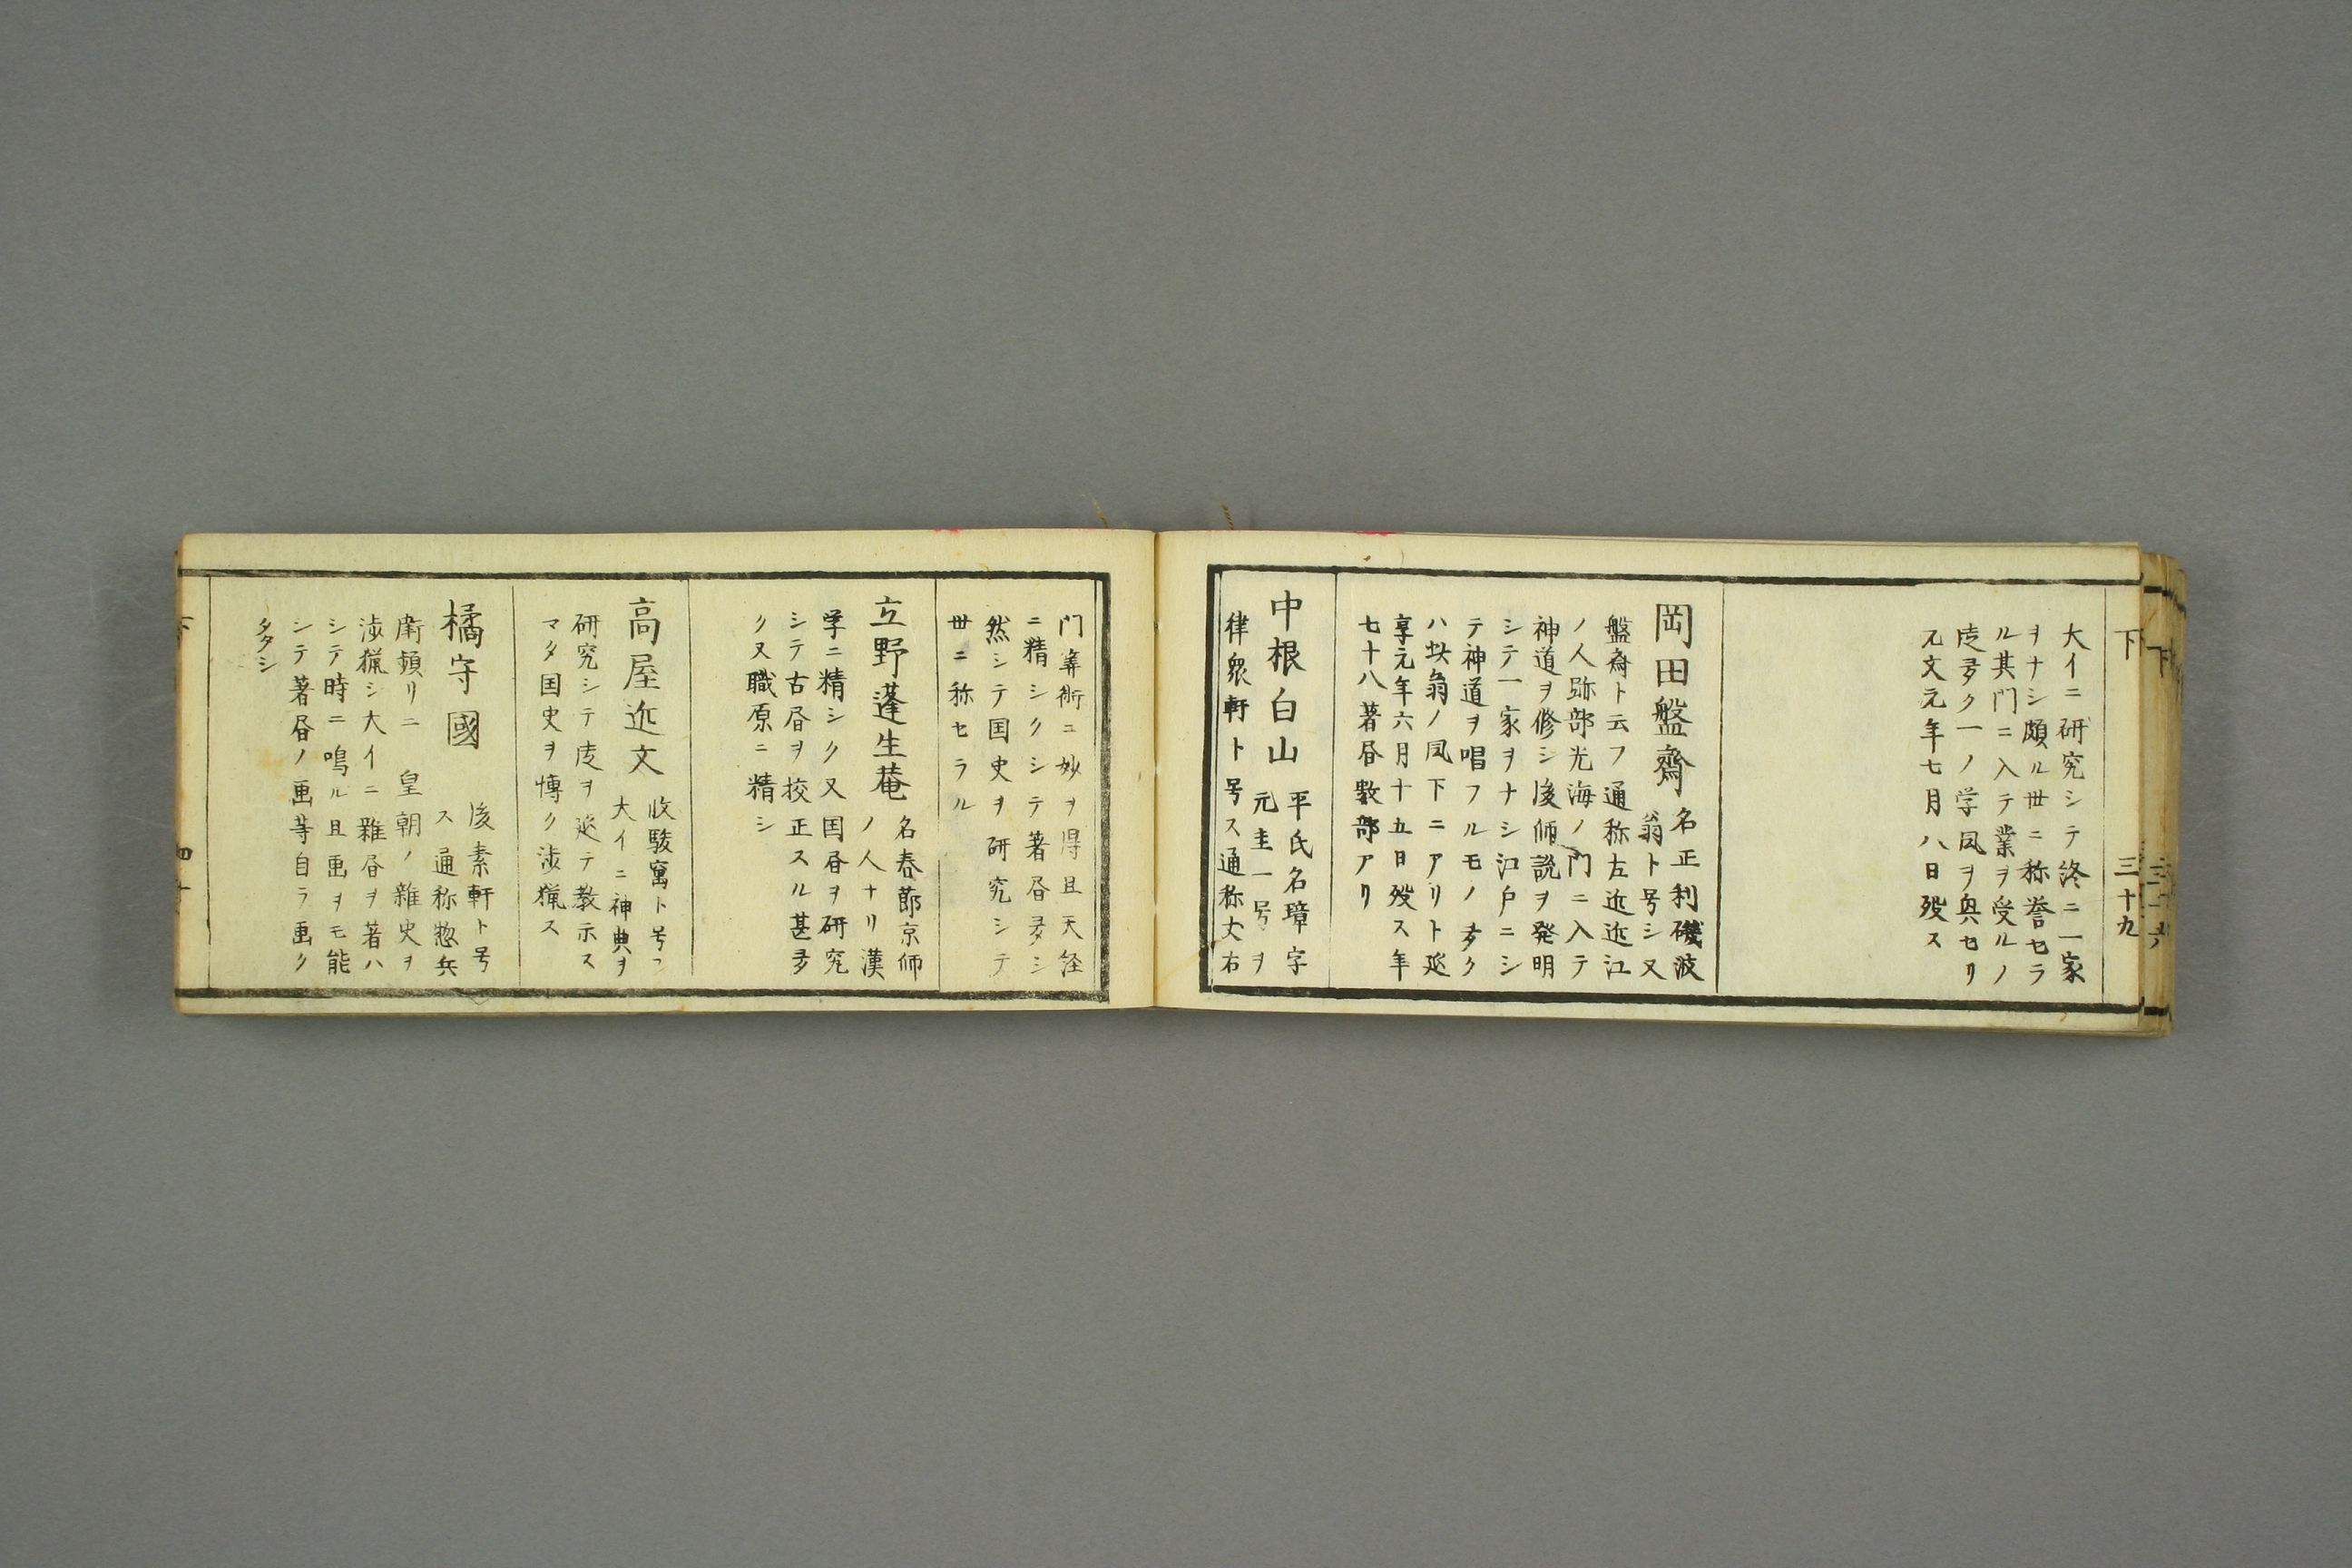 下 三十九
大イニ研究シテ終ニ一家
ヲナシ頗ル世ニ称誉セラ
ル其門ニ入テ業ヲ受ルノ
徒多ク一ノ学風ヲ奥セリ
元文元年七月八日歿ス
岡田盤齋 名正利磯波
翁ト号シ又
盤齋ト云フ通称左近近江
ノ人跡部光海ノ門ニ入テ
神道ヲ修シ後師説ヲ発明
シテ一家ヲナシ江戸ニシ
テ神道ヲ唱フルモノ多ク
ハ此翁ノ風下ニアリト延
享元年六月十五日歿ス年
七十八著書數部アリ
中根白山 平氏名璋字
元圭一号ヲ
律衆軒ト号ス通称丈右
門筭術ニ妙ヲ得且天経
ニ精シクシテ著書多シ
然シテ国史ヲ研究シテ
世ニ称セラル
立野蓬生菴 名春節京師
ノ人ナリ漢
学ニ精シク又国書ヲ研究
シテ古書ヲ挍正スル甚多
ク又職原ニ精シ
高屋近文 收駿窩ト号ス
大イニ神典ヲ
研究シテ徒ヲ延テ教示ス
マタ国史ヲ博ク渉猟ス
橘守國 後素軒ト号
ス通称惣兵
衛頻リニ 皇朝ノ雜史ヲ
渉猟シ大イニ雜書ヲ著ハ
シテ時ニ鳴ル且画ヲモ能
シテ著書ノ画等自ラ画ク
タタシ